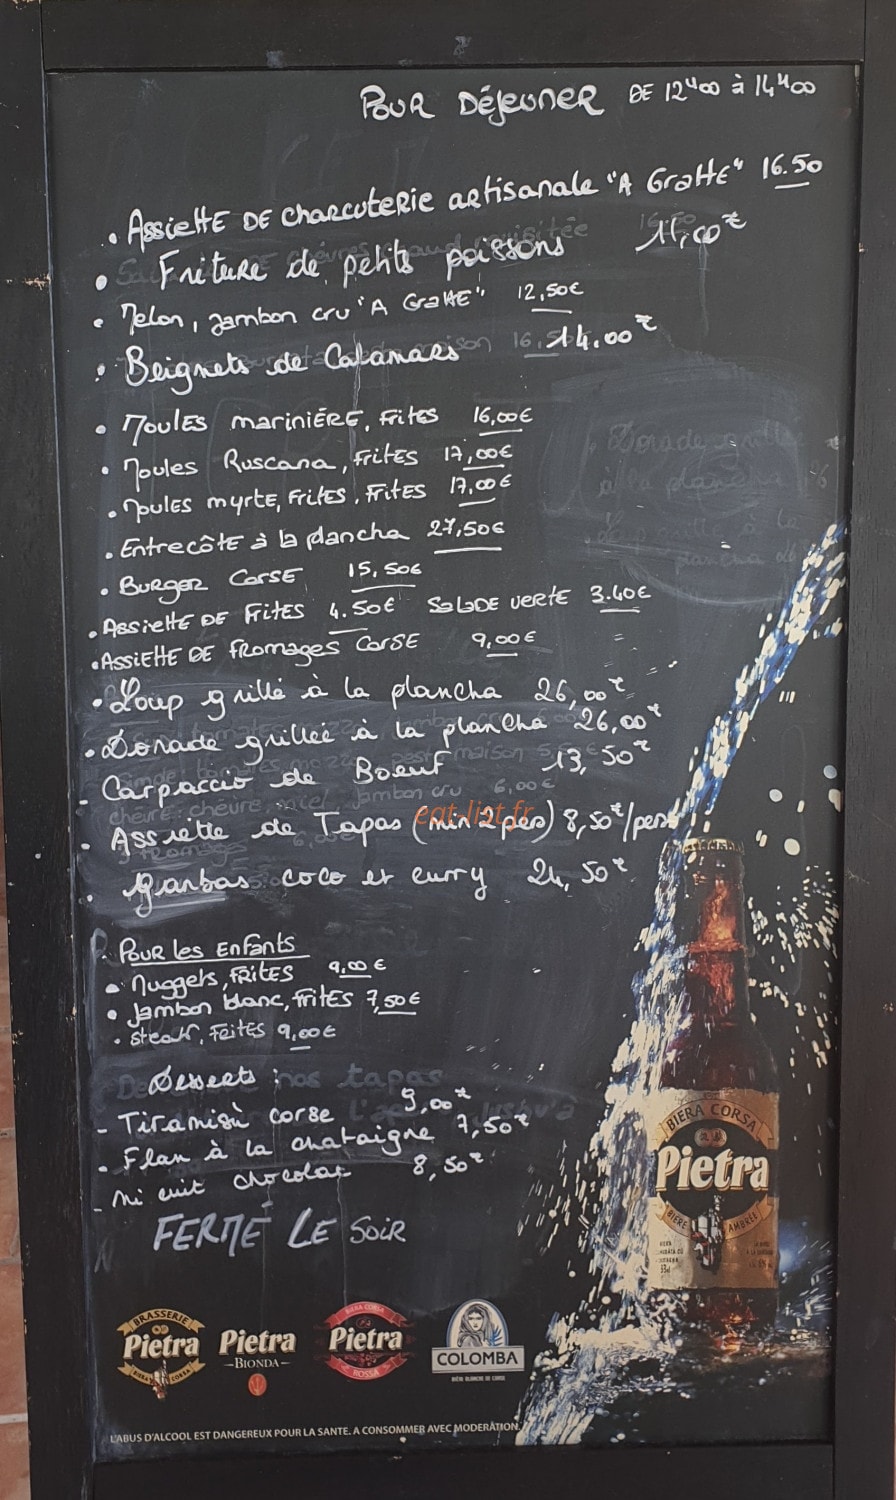 POUR DÉJEUNER DE 12H00 à 14H00
• ASSIETTE DE charcuterie artisanale "A GRATTE" 16.50
• Friture de petits poissons 11,00€
• Melon, jambon cru "A GRATTE" 12,50€
• Beignets de Calamars 14.00€
• MOULES MARINIÈRE, FRITES 16,00€
• Moules Ruscana, FRITES 17,00€
• Moules myrte, FRITES, FRITES 17,00€
• Entrecôte à la plancha 27,50€
• BURGER CORSE 15,50€
• ASSIETTE DE FRITES 4.50€ SALADE VERTE 3.40€
• ASSIETTE DE FROMAGES CORSE 9,00€
• Loup grillé à la plancha 26,00€
• Dorade grillée à la plancha 26,00€
- Carpaccio de Boeuf 13,50€
- Assiette de Tapas (min 2 pers) 8,50€/pers
eat-list.fr
• gambas coco et curry 24,50€
• POUR les ENFANTS
• Nuggets, FRITES 9,00€
• Jambon blanc, FRITES 7,50€
• Steak, FRITES 9,00€
Desserts :
- Tiramisù corse 9,00€
- Flan à la chataigne 7,50€
- Mi cuit chocolat 8,50€
FERMÉ LE SOIR
BIERA CORSA
Pietra
BIÈRE AMBRÉE
BRASSERIE
Pietra
BIERA CORSA
Pietra
BIONDA
BIERA CORSA
Pietra
ROSSA
COLOMBA
BIÈRE BLANCHE DE CORSE
L'ABUS D'ALCOOL EST DANGEREUX POUR LA SANTE. A CONSOMMER AVEC MODERATION.